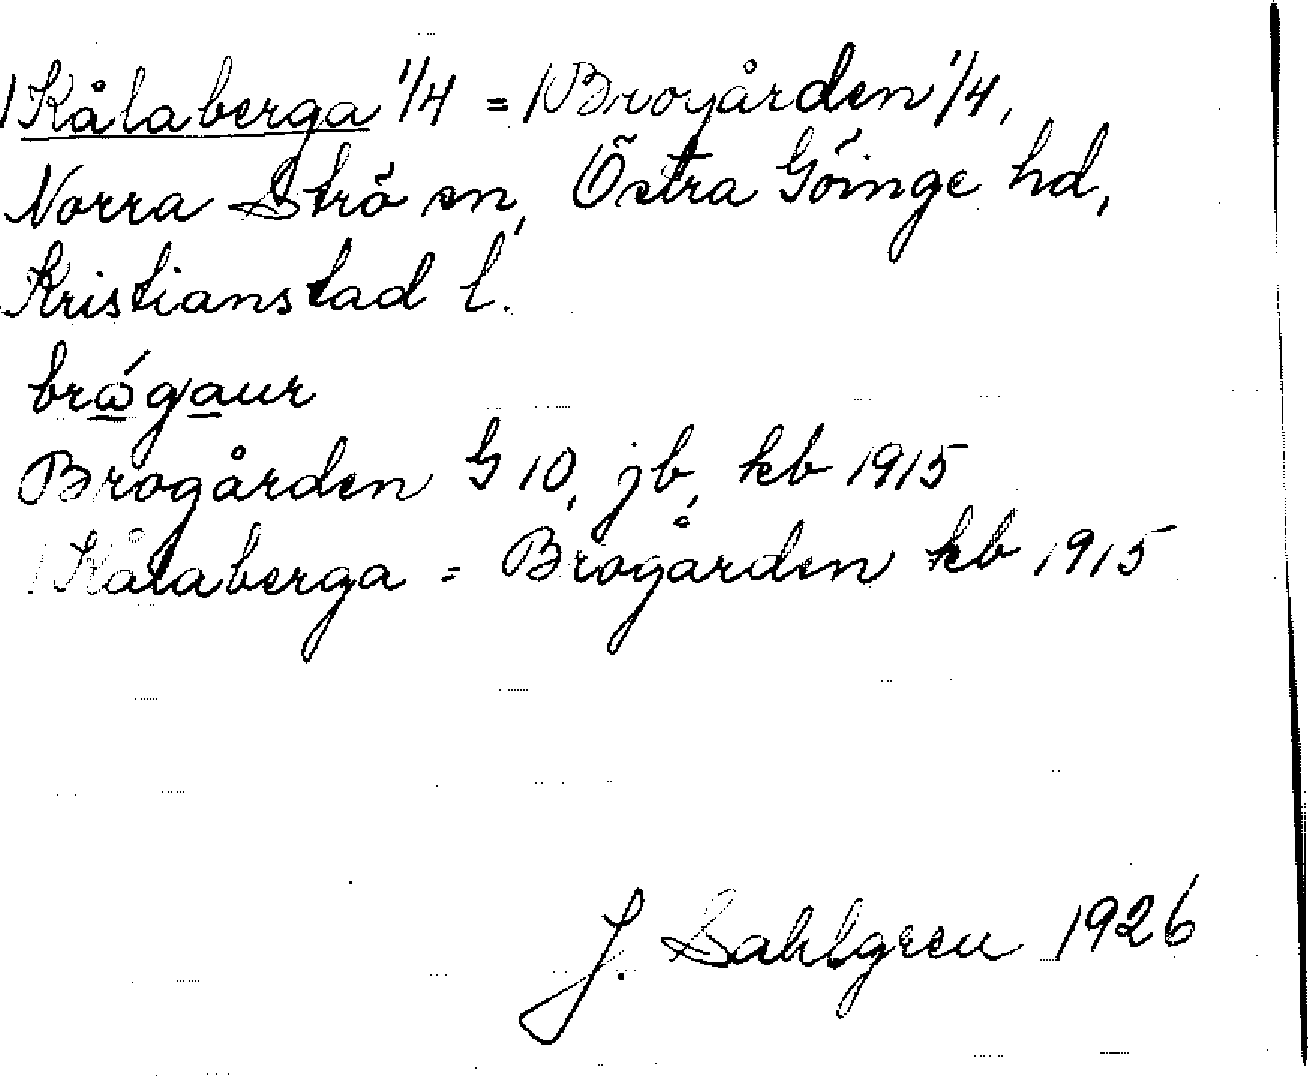 /Kålaberga 1/4 = /Brogården 1/4,
Norra Strö sn, Östra Göinge hd,
Kristianstad l.
brώ̲ga̲ur
Brogården G 10, jb, kb 1915
/Kålaberga = Brogården kb 1915
J. Sahlgren 1926